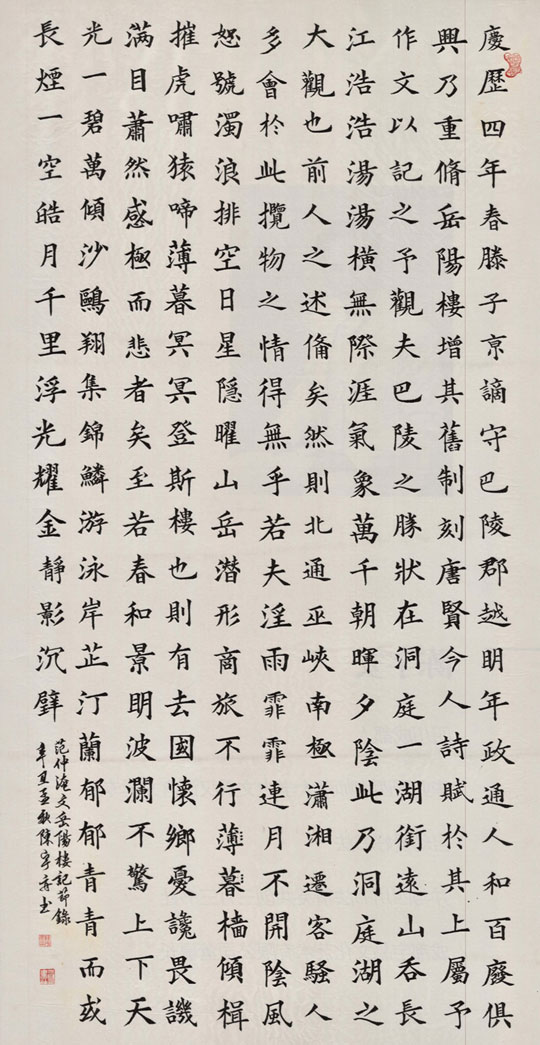 慶歷四年春滕子亰謫守巴陵郡越明年政通人和百廢俱
興乃重脩岳陽樓增其舊制刻唐賢今人詩賦於其上屬予
作文以記之予觀夫巴陵之勝狀在洞庭一湖銜遠山吞長
江浩浩湯湯橫無際涯氣象萬千朝暉夕陰此乃洞庭湖之
大觀也前人之述俻矣然則北通巫峽南極瀟湘遷客騷人
多會於此攬物之情得無乎若夫淫雨霏霏連月不開陰風
怒號濁浪排空日星隱曜山岳潛形商旅不行薄暮檣傾楫
摧虎嘯猿啼薄暮冥冥登斯樓也則有去國懷鄉憂讒畏譏
滿目蕭然感極而悲者矣至若春和景明波瀾不驚上下天
光一碧萬傾沙鷗翔集錦鱗游泳岸芷汀蘭郁郁青青而或
長煙一空皓月千里浮光耀金靜影沉璧
范仲淹文岳陽樓記節錄
辛丑孟秋陳书